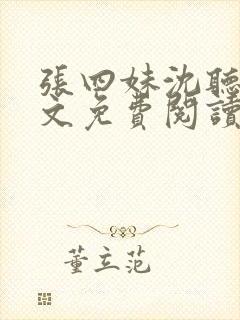 張四妹沈聽
文免費閱讀
董立范